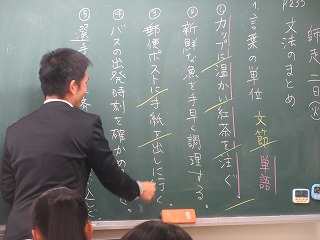 P235
師走 二日 (火)
文法のまとめ
1. 言葉の単位 文節 単語
①カップに温かい紅茶を注ぐ
②新鮮な魚を手早く調理する。
③郵便ポストに手紙を出しに行く。
④バスの出発時刻を確かめ
⑤選手